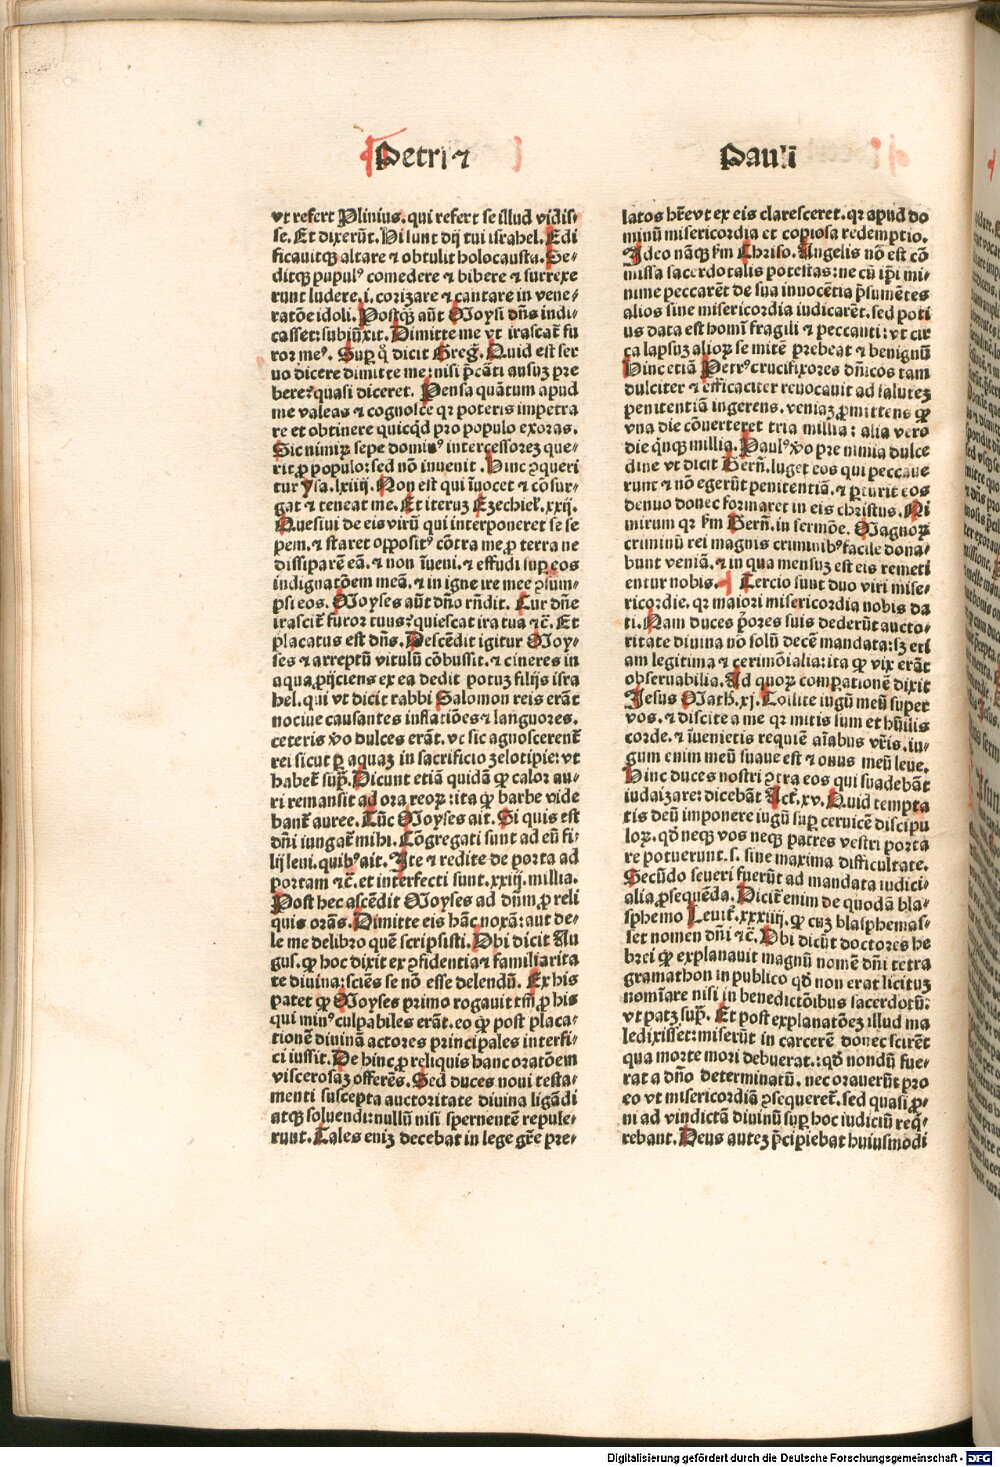 Petri ⁊ Pauli
vt refert Plinius. qui refert se illud vidis⸗
se. Et dixerūt. Hi sunt dij tui israhel. Edi
ficauitqꝫ altare ⁊ obtulit holocausta. Se⸗
ditqꝫ populꝰ comedere ⁊ bibere ⁊ surrexe
runt ludere. i. corizare ⁊ cantare in vene⸗
ratōe idoli. Postqꝫ aūt Moysi dn̄s indi⸗
casset: subiūxit. Dimitte me vt irascat᷑ fu
ror meꝰ. Suꝑ qͦ dicit Greg̃. Quid est ser
uo dicere dimitte me: nisi p̄cāti ausuꝫ pre
bere? quasi diceret. Pensa quātum apud
me valeas ⁊ cognosce qꝛ poteris impetra
re et obtinere quicqͥd pro populo exoras.
Sic nimiꝝ sepe dominꝰ intercessoreꝫ que⸗
rit ꝓ populo: sed nō inuenit. Hinc ꝯqueri
tur Ysa. lxiiij. Non est qui īuocet ⁊ cōsur⸗
gat ⁊ teneat me. Et iteruꝫ Ezechieł. xxij.
Quesiui de eis virū qui interponeret se se
pem. ⁊ staret oppositꝰ cōtra me ꝓ terra ne
dissiparē eā. ⁊ non īueni. ⁊ effudi suꝑ eos
indignatōem meā. ⁊ in igne ire mee ꝯsum⸗
psi eos. Moyses aūt dn̄o rn̄dit. Cur dn̄e
irascit᷑ furor tuus? quiescat ira tua ⁊c̄. Et
placatus est dn̄s. Descēdit igitur Moy⸗
ses ⁊ arreptū vitulū cōbussit. ⁊ cineres in
aqua ꝓijciens ex ea dedit potuꝫ filijs isra
hel. qui vt dicit rabbi Salomon reis erāt
nociue causantes inflatiōes ⁊ languores.
ceteris ꝟo dulces erāt. vt sic agnoscerent᷑
rei sicut ꝑ aquaꝫ in sacrificio zelotipie: vt
habet᷑ sup̄. Dicunt etiā quidā ꝙ calor au⸗
ri remansit ad ora reoꝝ: ita ꝙ barbe vide
bant᷑ auree. Tūc Moyses ait. Si quis est
dn̄i iungat᷑ mihi. Cōgregati sunt ad eū fi⸗
lij leui. quibꝰ ait. Ite ⁊ redite de porta ad
portam ⁊c̄. et interfecti sunt. xxiij. millia.
Post hec ascēdit Moyses ad dn̄m ꝓ reli
quis orās. Dimitte eis hāc noxā: aut de⸗
le me de libro quē scripsisti. Vbi dicit Au
gus. ꝙ hoc dixit ex ꝯfidentia ⁊ familiarita
te diuina: sciēs se nō esse delendū. Ex his
patet ꝙ Moyses primo rogauit tm̄ ꝓ his
qui minꝰ culpabiles erāt. eo ꝙ post placa⸗
tionē diuinā actores principales interfi⸗
ci iussit. De hinc ꝓ reliquis hanc oratōem
viscerosaꝫ offerēs. Sed duces noui testa⸗
menti suscepta auctoritate diuina ligādi
atqꝫ soluendi: nullū nisi spernentē repule⸗
runt. Tales enīꝫ decebat in lege gr̄e pre⸗
latos hr̄e vt ex eis claresceret. qꝛ apud do
minū misericordia et copiosa redemptio.
Ideo nāqꝫ ẜm Chriso. Angelis nō est cō
missa sacerdotalis potestas: ne cū ip̄i mi⸗
nime peccarēt de sua innocētia p̄sumētes
alios sine misericordia iudicarēt. sed poti
us data est homī fragili ⁊ peccanti: vt cir
ca lapsuꝫ alioꝝ se mitē prebeat ⁊ benignū
Hinc etiā Petrꝰ crucifixores dn̄icos tam
dulciter ⁊ efficaciter reuocauit ad saluteꝫ
penitentiā ingerens. veniaꝫ ꝓmittens ꝙ
vna die cōuerteret tria millia: alia vero
die qͥnqꝫ millia. Paulꝰ ꝟo pre nimia dulce
dine vt dicit Bern̄. luget eos qui peccaue
runt ⁊ nō egerūt penitentiā. ⁊ ꝑturit eos
denuo donec formaret᷑ in eis christus. Ni
mirum qꝛ ẜm Bern̄. in sermōe. Magnoꝝ
criminū rei magnis criminibꝰ facile dona⸗
bunt veniā. ⁊ in qua mensuꝫ est eis remeti
entur nobis. Tercio sunt duo viri mise⸗
ricordie. qꝛ maiori misericordia nobis da
ti. Nam duces p̄ores suis dederūt aucto⸗
ritate diuina nō solū decē mandata: sꝫ eti
am legitima ⁊ cerimōialia: ita ꝙ vix erāt
obseruabilia. Ad quoꝝ compationē dixit
Jesus Math. xj. Tollite iugū meū super
vos. ⁊ discite a me qꝛ mitis sum et hūilis
corde. ⁊ īuenietis requiē aīabus vr̄is. iu⸗
gum enim meū suaue est ⁊ onus meū leue.
Hinc duces nostri ꝯtra eos qui suadebāt
iudaizare: dicebāt Act᷑. xv. Quid tempta
tis deū imponere iugū suꝑ ceruicē discipu
loꝝ. qd̄ neqꝫ vos neqꝫ patres vestri porta
re potuerunt. s. sine maxima difficultate.
Secūdo seueri fuerūt ad mandata iudici⸗
alia ꝓsequēda. Dicit᷑ enim de quodā bla⸗
sphemo Leuit᷑. xxxiiij. ꝙ cuꝫ blasphemas⸗
set nomen dn̄i ⁊c̄. Vbi dicūt doctores he
brei ꝙ explanauit magnū nomē dn̄i tetra
gramathon in publico qd̄ non erat licituꝫ
nomīare nisi in benedictōibus sacerdotū:
vt patꝫ sup̄. Et post explanatōeꝫ illud ma
ledixisset: miserūt in carcerē donec scirēt
qua morte mori debuerat.: qd̄ nondū fue⸗
rat a dn̄o determinatū. nec orauerūt pro
eo vt misericordiā ꝯsequeret᷑. sed quasi ꝓ⸗
ni ad vindictā diuinū suꝑ hoc iudiciū reqͥ⸗
rebant. Deus auteꝫ p̄cipiebat huiusmodi
Digitalisierung gefördert durch die Deutsche Forschungsgemeinschaft - DFG